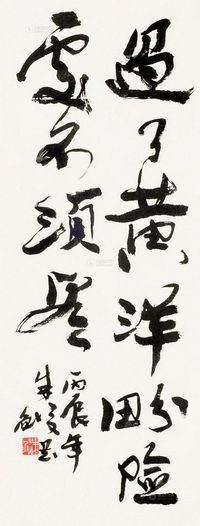 過了黄洋畍險
處不須看
丙辰年
朱